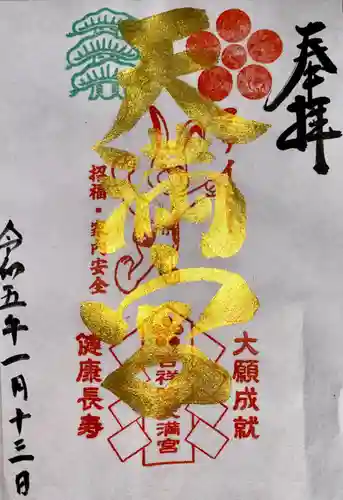 奉拝
天満宮
招福・家内安全
大願成就
健康長寿
吉祥天満宮
令和五年一月十三日